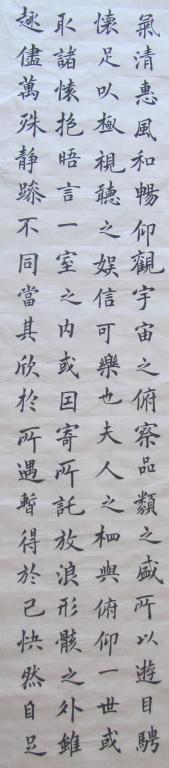 氣清惠風和暢仰觀宇宙之俯察品類之盛所以遊目騁
懷足以極視聽之娛信可樂也夫人之相與俯仰一世或
取諸懷抱晤言一室之内或因寄所託放浪形骸之外雖
趣儘萬殊静躁不同當其欣於所遇暫得於己快然自足